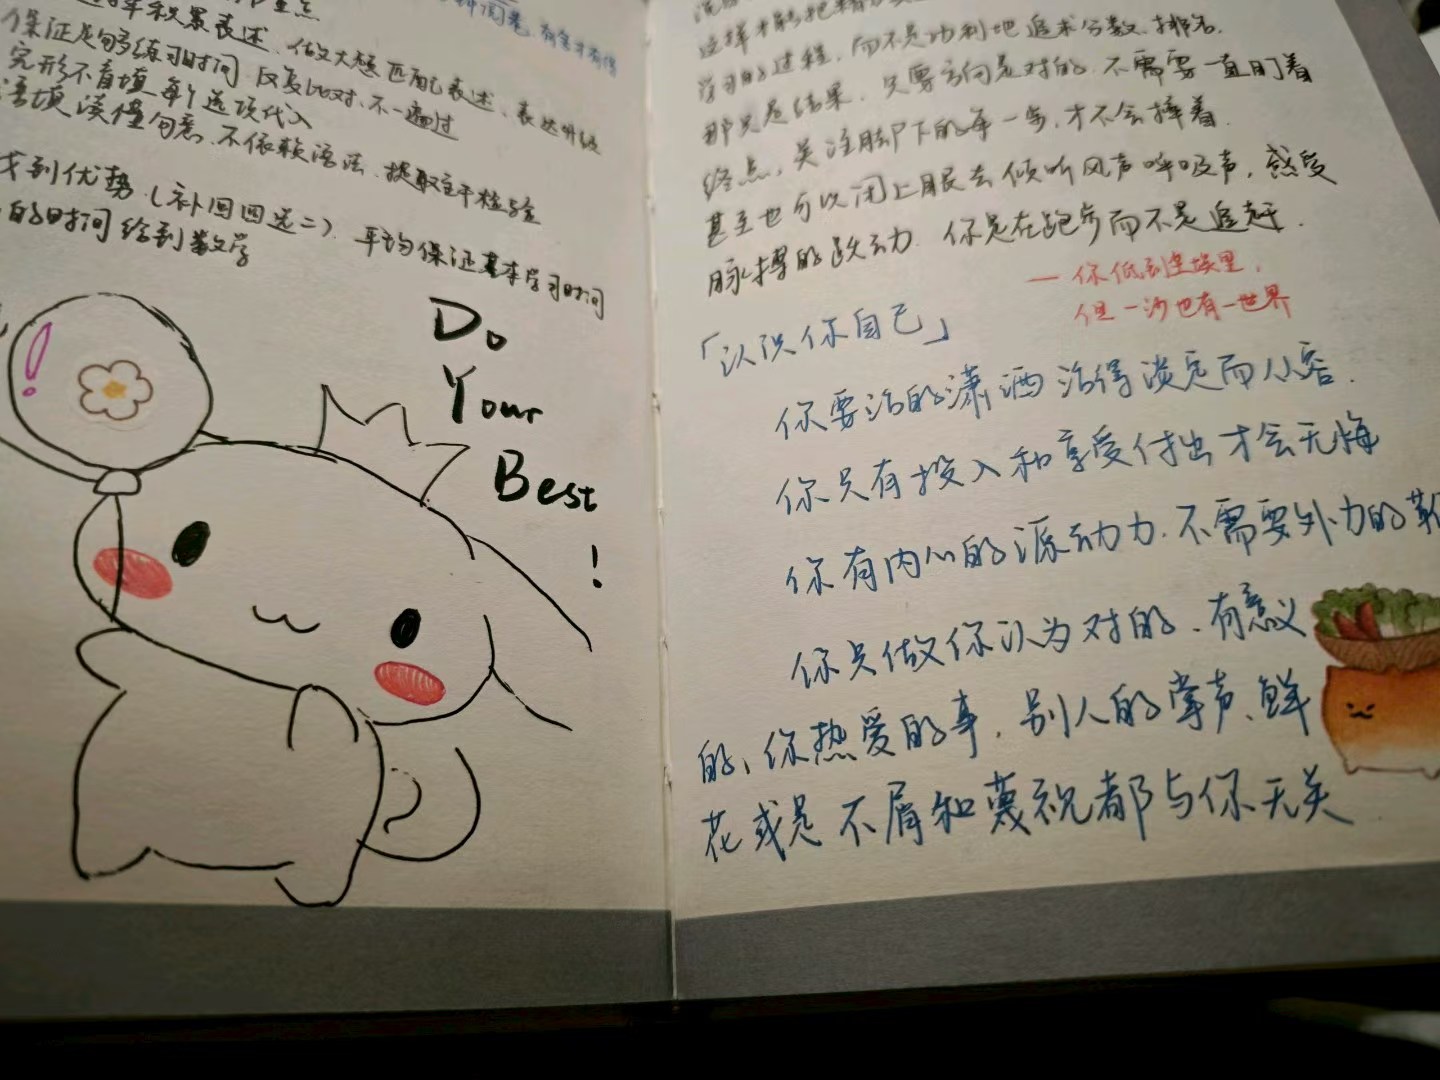 积累表述、做大题匹配表述、表达升级
保证足够练习时间 反复比对、不一遍过
完形不盲填 每个选项代入
语填读懂句意、不依赖语法、提取主干检验
找到优势（补回四选二） 平均保证基本学习时间
的时间给到数学
有舍才有得
!
Do
Your
Best
!
这样才能把精
学习的过程，而不是功利地追求分数、排名.
那只是结果. 只要方向是对的，不需要一直盯着
终点，关注脚下的每一步，才不会摔着.
甚至也可以闭上眼去倾听风声呼吸声，感受
脉搏的跃动. 你是在跑步而不是追赶.
— 你低到尘埃里，
但一沙也有一世界
「认识你自己」
你要活的潇洒 活得淡定而从容.
你只有投入和享受付出才会无悔
你有内心的源动力. 不需要外力的
你只做你认为对的、有意义
的、你热爱的事. 别人的掌声、鲜
花或是不屑和蔑视都与你无关